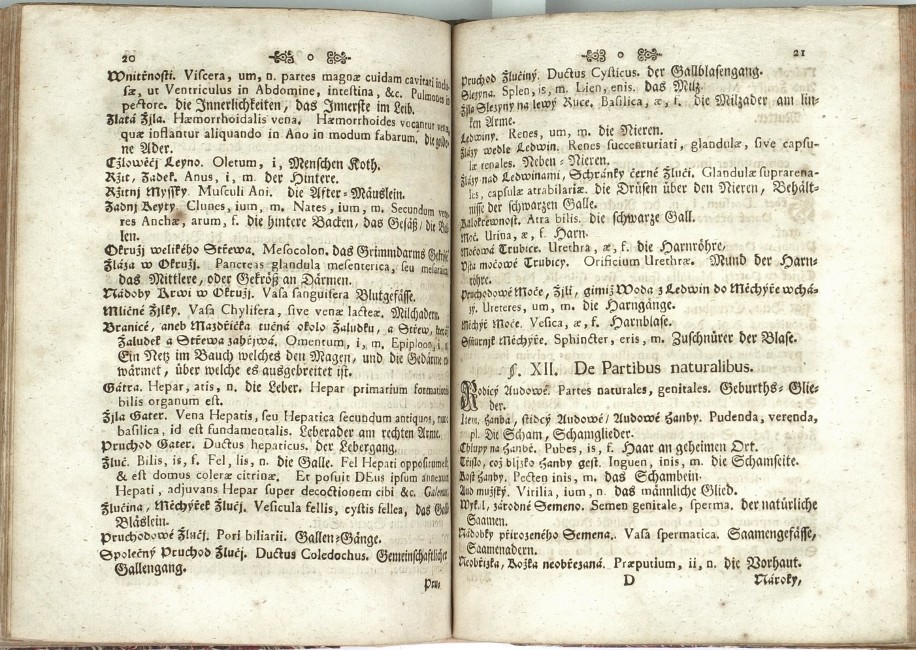 20
Wnitřnosti. Viscera, um, n. partes magnæ cuidam cavitati inclu-
sæ, ut Ventriculus in Abdomine, intestina, &c. Pulmones in
pectore. die Innerlichkeiten, das Innerste im Leib.
Zlatá Žjla. Hæmorrhoidalis vena. Hæmorrhoides vocantur venæ,
quæ inflantur aliquando in Ano in modum fabarum, die goldne
ne Ader.
Cžlowěčj Leyno. Oletum, i, Menschen Koth.
Ržit, Zadek. Anus, i, m. der Hintere.
Ržitnj Myssky. Musculi Ani. die After-Mäuslein.
Zadnj Keyty. Clunes, ium, m. Nates, ium, m. Secundum
res Anchæ, arum, f. die hintere Backen, das Gesäß/ die
len.
Okruzj welikého Střewa. Mesocolon. das Grimmdarms Gekröß
Žláza w Okružj. Pancreas glandula mesenterica, seu
das Mittlere, oder Gekröß an Därmen.
Nádoby Krwi w Okružj. Vasa sanguifera Blutgefässe.
Mličné Žilky. Vasa Chylifera, sive venæ lacteæ. Milchadern.
Branice, aneb Mazdřička tučná okolo Žaludku, a Střew, která
Žaludek a Střewa zahřjwá. Omentum, i, m. Epiploon, i, n.
Ein Netz im Bauch welches den Magen, und die Gedärme er-
wärmet, über welche es ausgebreitet ist.
Gátra. Hepar, atis, n. die Leber. Hepar primarium formationis
bilis organum est.
Žjla Gater. Vena Hepatis, seu Hepatica secundum antiquos, nunc
basilica, id est fundamentalis. Leberader am rechten Arme.
Pruchod Gater. Ductus hepaticus. der Lebergang.
Žluč. Bilis, is, f. Fel, lis, n. die Galle. Fel Hepati oppositum est,
& est domus coleræ citrinæ. Et posuit DEus ipsum annexum
Hepati, adjuvans Hepar super decoctionem cibi &c. Galenus.
Žlučina, Měchýřek Žlučj. Vesicula fellis, cystis fellea, das Gall-
Bläslein.
Pruchodowé Žlučj. Pori biliarii. Gallen-Gänge.
Společný Pruchod Žlučj. Ductus Coledochus. Gemeinschaftlicher
Gallengang.
Pru-
21
Pruchod Žlučiny. Ductus Cysticus. der Gallblasengang.
Slezyna. Splen, is, m. Lien, enis. das Milz.
Žjla Slezyny na lewý Ruce. Basilica, æ, f. die Milzader am lin-
ken Arme.
Ledwiny. Renes, um, m. die Nieren.
Žlázy wedle Ledwin. Renes succenturiati, glandulæ, sive capsu-
læ renales. Neben-Nieren.
Žlázy nad Ledwinami, Schránky černé Žlučj. Glandulæ suprarena-
les, capsulæ atrabilariæ. die Drüsen über den Nieren, Behält-
nisse der schwarzen Galle.
Kalokrewnost. Atra bilis. die schwarze Gall.
Moč. Urina, æ, f. Harn.
Močowá Trubice. Urethra, æ, f. die Harnröhre,
Usta močowé Trubicy. Orificium Urethræ. Mund der Harn-
röhre.
Pruchodowé Moče, Žjli, gimiž Woda z Ledwin do Měchýře wchá-
zý. Ureteres, um, m. die Harngänge.
Měchýř Moče. Vesica, æ, f. Harnblase.
Sstiurnjk Měchýře. Sphincter, eris, m. Zuschnürer der Blase.
§. XII. De Partibus naturalibus.
Rodicý Audowé. Partes naturales, genitales. Geburths-Glie-
der.
Item, Hanba, stidcý Audowé/ Audowé Hanby. Pudenda, verenda,
pl. Die Scham, Schamglieder.
Chlupy na Hanbě. Pubes, is, f. Haar an geheimen Ort.
Třislo, což bljzko Hanby gest. Inguen, inis, m. die Schamseite.
Kost Hanby. Pecten inis, m. das Schambein.
Aud mužský. Virilia, ium, n. das männliche Glied.
Wýkal, zárodné Semeno. Semen genitale, sperma. der natürliche
Saamen.
Nádobky přirozeného Semena. Vasa spermatica. Saamengefässe,
Saamenadern.
Neobřizka, Kožka neobřezaná. Præputium, ii, n. die Vorhaut.
D Nároky,